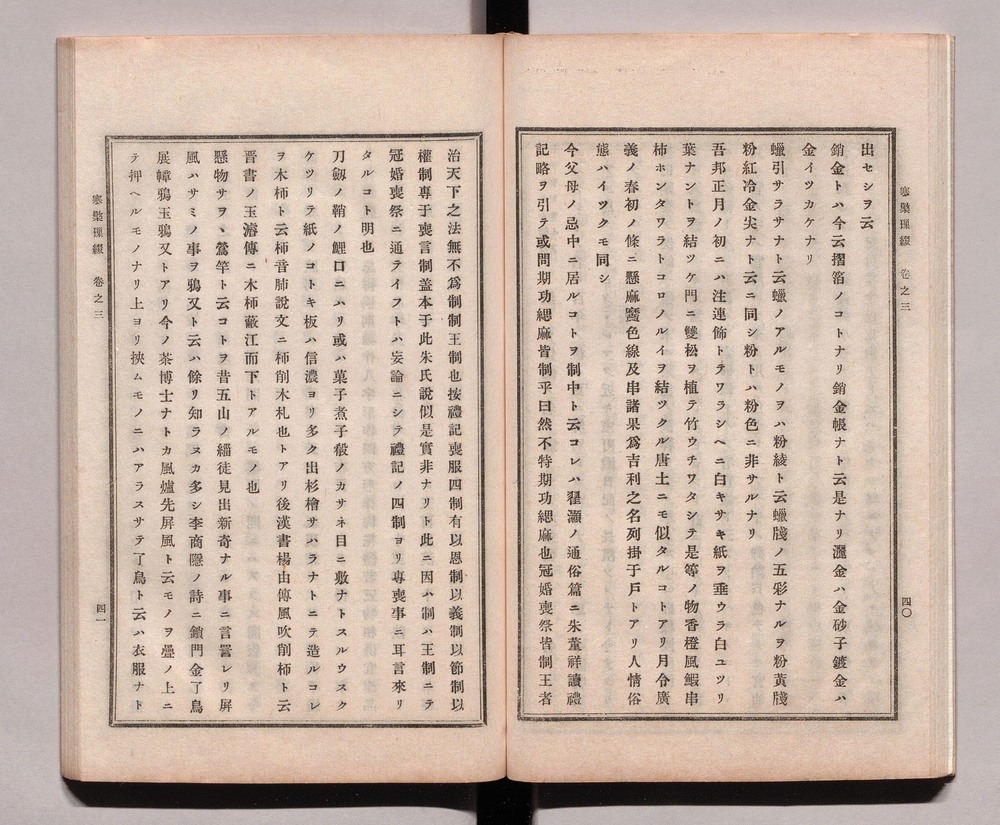 寒檠璅綴 卷之三
四〇
出セシヲ云
銷金トハ今云摺箔ノコトナリ銷金帳ナト云是ナリ灑金ハ金砂子鍍金ハ
金イツカケナリ
蠟引サラサナト云蠟ノアルモノヲハ粉綾ト云蠟牋ノ五彩ナルヲ粉黃牋
粉紅冷金尖ナト云ニ同シ粉トハ粉色ニ非サルナリ
吾邦正月ノ初ニハ注連飾トテワラシヘニ白キサキ紙ヲ垂ウラ白ユツリ
葉ナントヲ結ツケ門ニ雙松ヲ植テ竹ウチワタシテ是等ノ物香橙風鰕串
柿ホンタワラトコロノルイヲ結ツクル唐土ニモ似タルコトアリ月令廣
義ノ春初ノ條ニ懸麻鸞色線及串諸果爲吉利之名列掛于戶トアリ人情俗
態ハイツクモ同シ
今父母ノ忌中ニ居ルコトヲ制中ト云コレハ翟灝ノ通俗篇ニ朱董祥讀禮
記略ヲ引テ或問期功緦麻皆制乎曰然不特期功緦麻也冠婚喪祭皆制王者
治天下之法無不爲制制王制也按禮記喪服四制有以恩制以義制以節制以
權制專于喪言制盖本于此朱氏說似是實非ナリト此ニ因ハ制ハ王制ニテ
冠婚喪祭ニ通テイフトハ妄論ニシテ禮記ノ四制ヨリ專喪事ニ耳言來リ
タルコト明也
刀劔ノ鞘ノ鯉口ニハリ或ハ菓子煮子殽ノカサネ目ニ敷ナトスルウスク
ケツリテ紙ノコトキ板ハ信濃ヨリ多ク出杉檜サハラナトニテ造ルコレ
ヲ木柹ト云柹音肺說文ニ柹削木札也トアリ後漢書楊由傳風吹削柹ト云
晋書ノ玉濬傳ニ木柹蔽江而下トアルモノ也
懸物サヲヽ鴬竿ト云コトヲ昔五山ノ緇徒見出新奇ナル事ニ言詈レリ屏
風ハサミノ事ヲ鴉又ト云ハ餘リ知ラヌカ多シ李商隱ノ詩ニ鎖門金了鳥
展幛鴉玉鴉又トアリ今ノ茶博士ナトカ風爐先屏風ト云モノヲ疊ノ上ニ
テ押ヘルモノナリ上ヨリ挾ムモノニハアラスサテ了鳥ト云ハ衣服ナト
寒檠璅綴 卷之三
四一